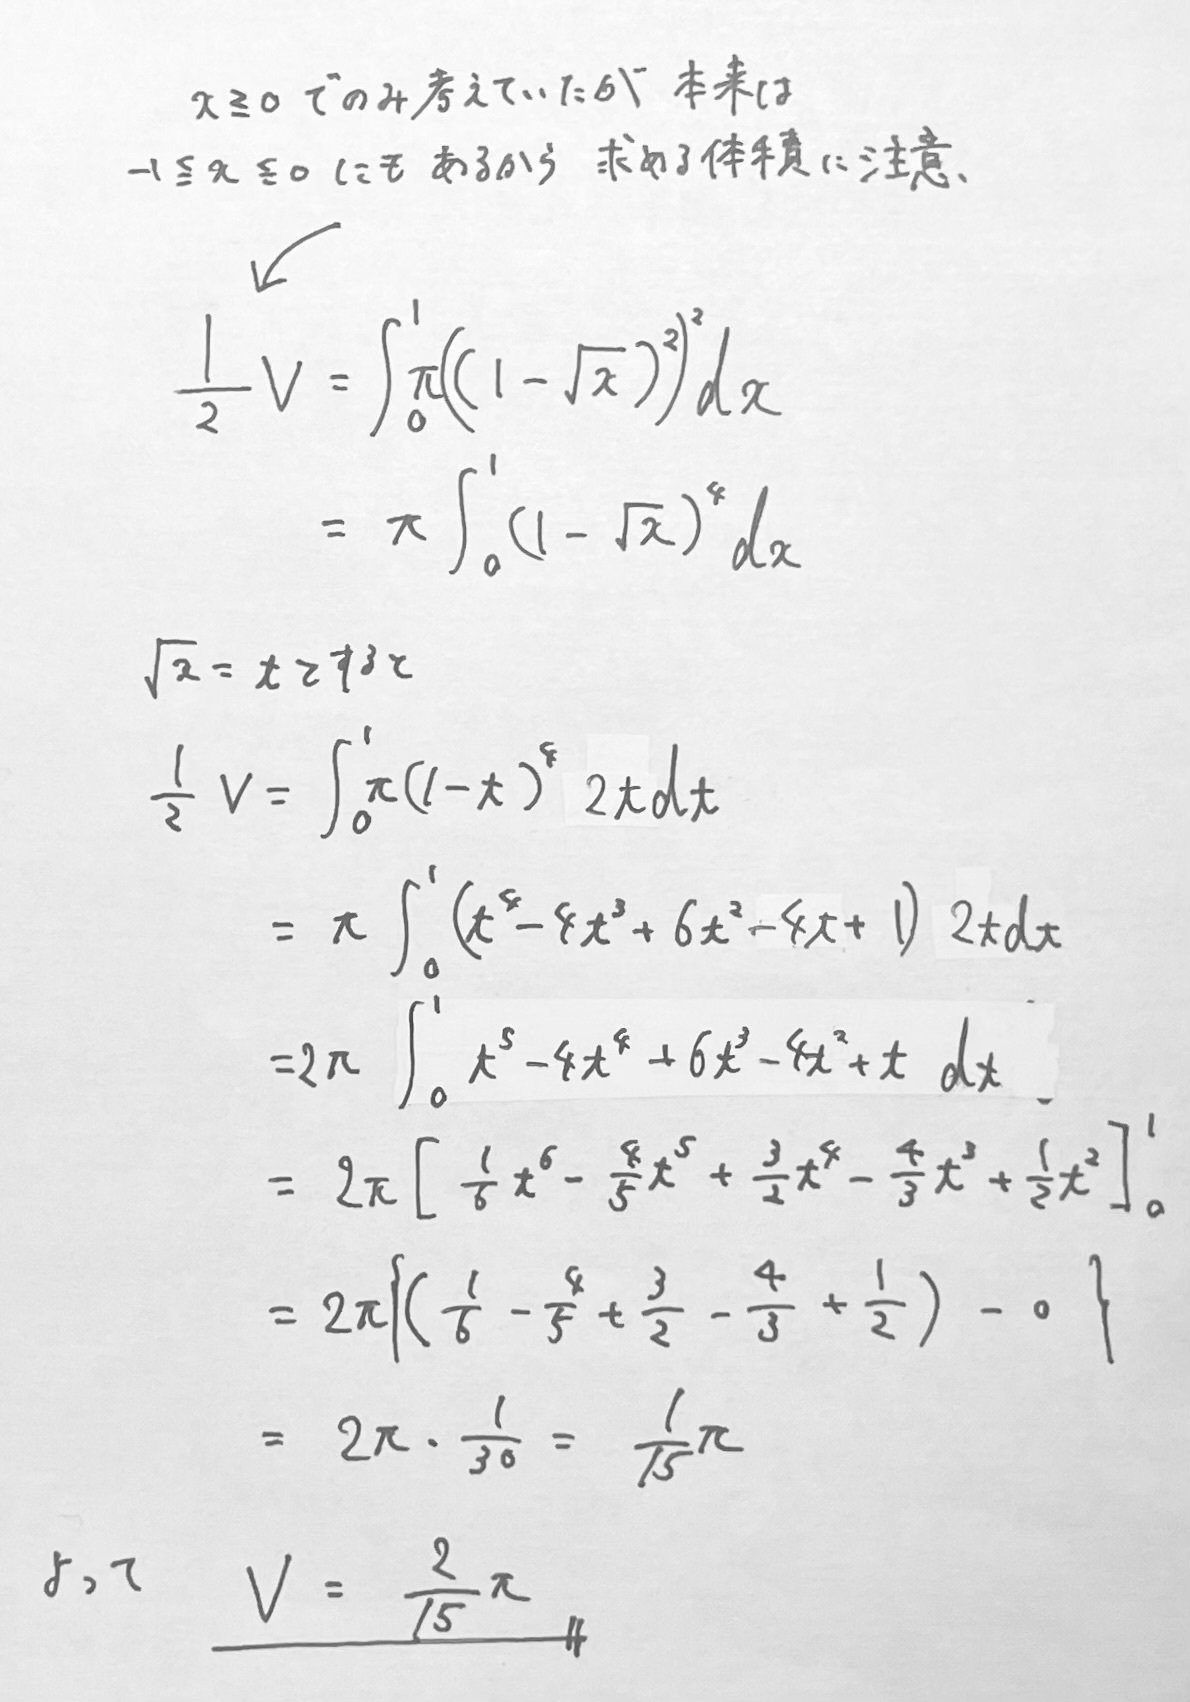 x≧0 でのみ考えていたが 本来は
-1≦x≦0 にも あるから 求める体積に注意、
1/2 V = ∫₀¹ π((1-√x)²)² dx
= π ∫₀¹ (1-√x)⁴ dx
√x = t とすると
1/2 V = ∫₀¹ π(1-t)⁴ 2t dt
= π ∫₀¹ (t⁴-4t³+6t²-4t+1) 2t dt
=2π ∫₀¹ t⁵-4t⁴+6t³-4t²+t dt
= 2π [ 1/6 t⁶ - 4/5 t⁵ + 3/2 t⁴ - 4/3 t³ + 1/2 t² ]₀¹
= 2π{( 1/6 - 4/5 + 3/2 - 4/3 + 1/2 ) - 0 }
= 2π・1/30 = 1/15 π
よって V = 2/15 π